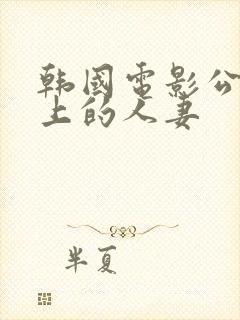 韩國电影公
上的人妻
半夏